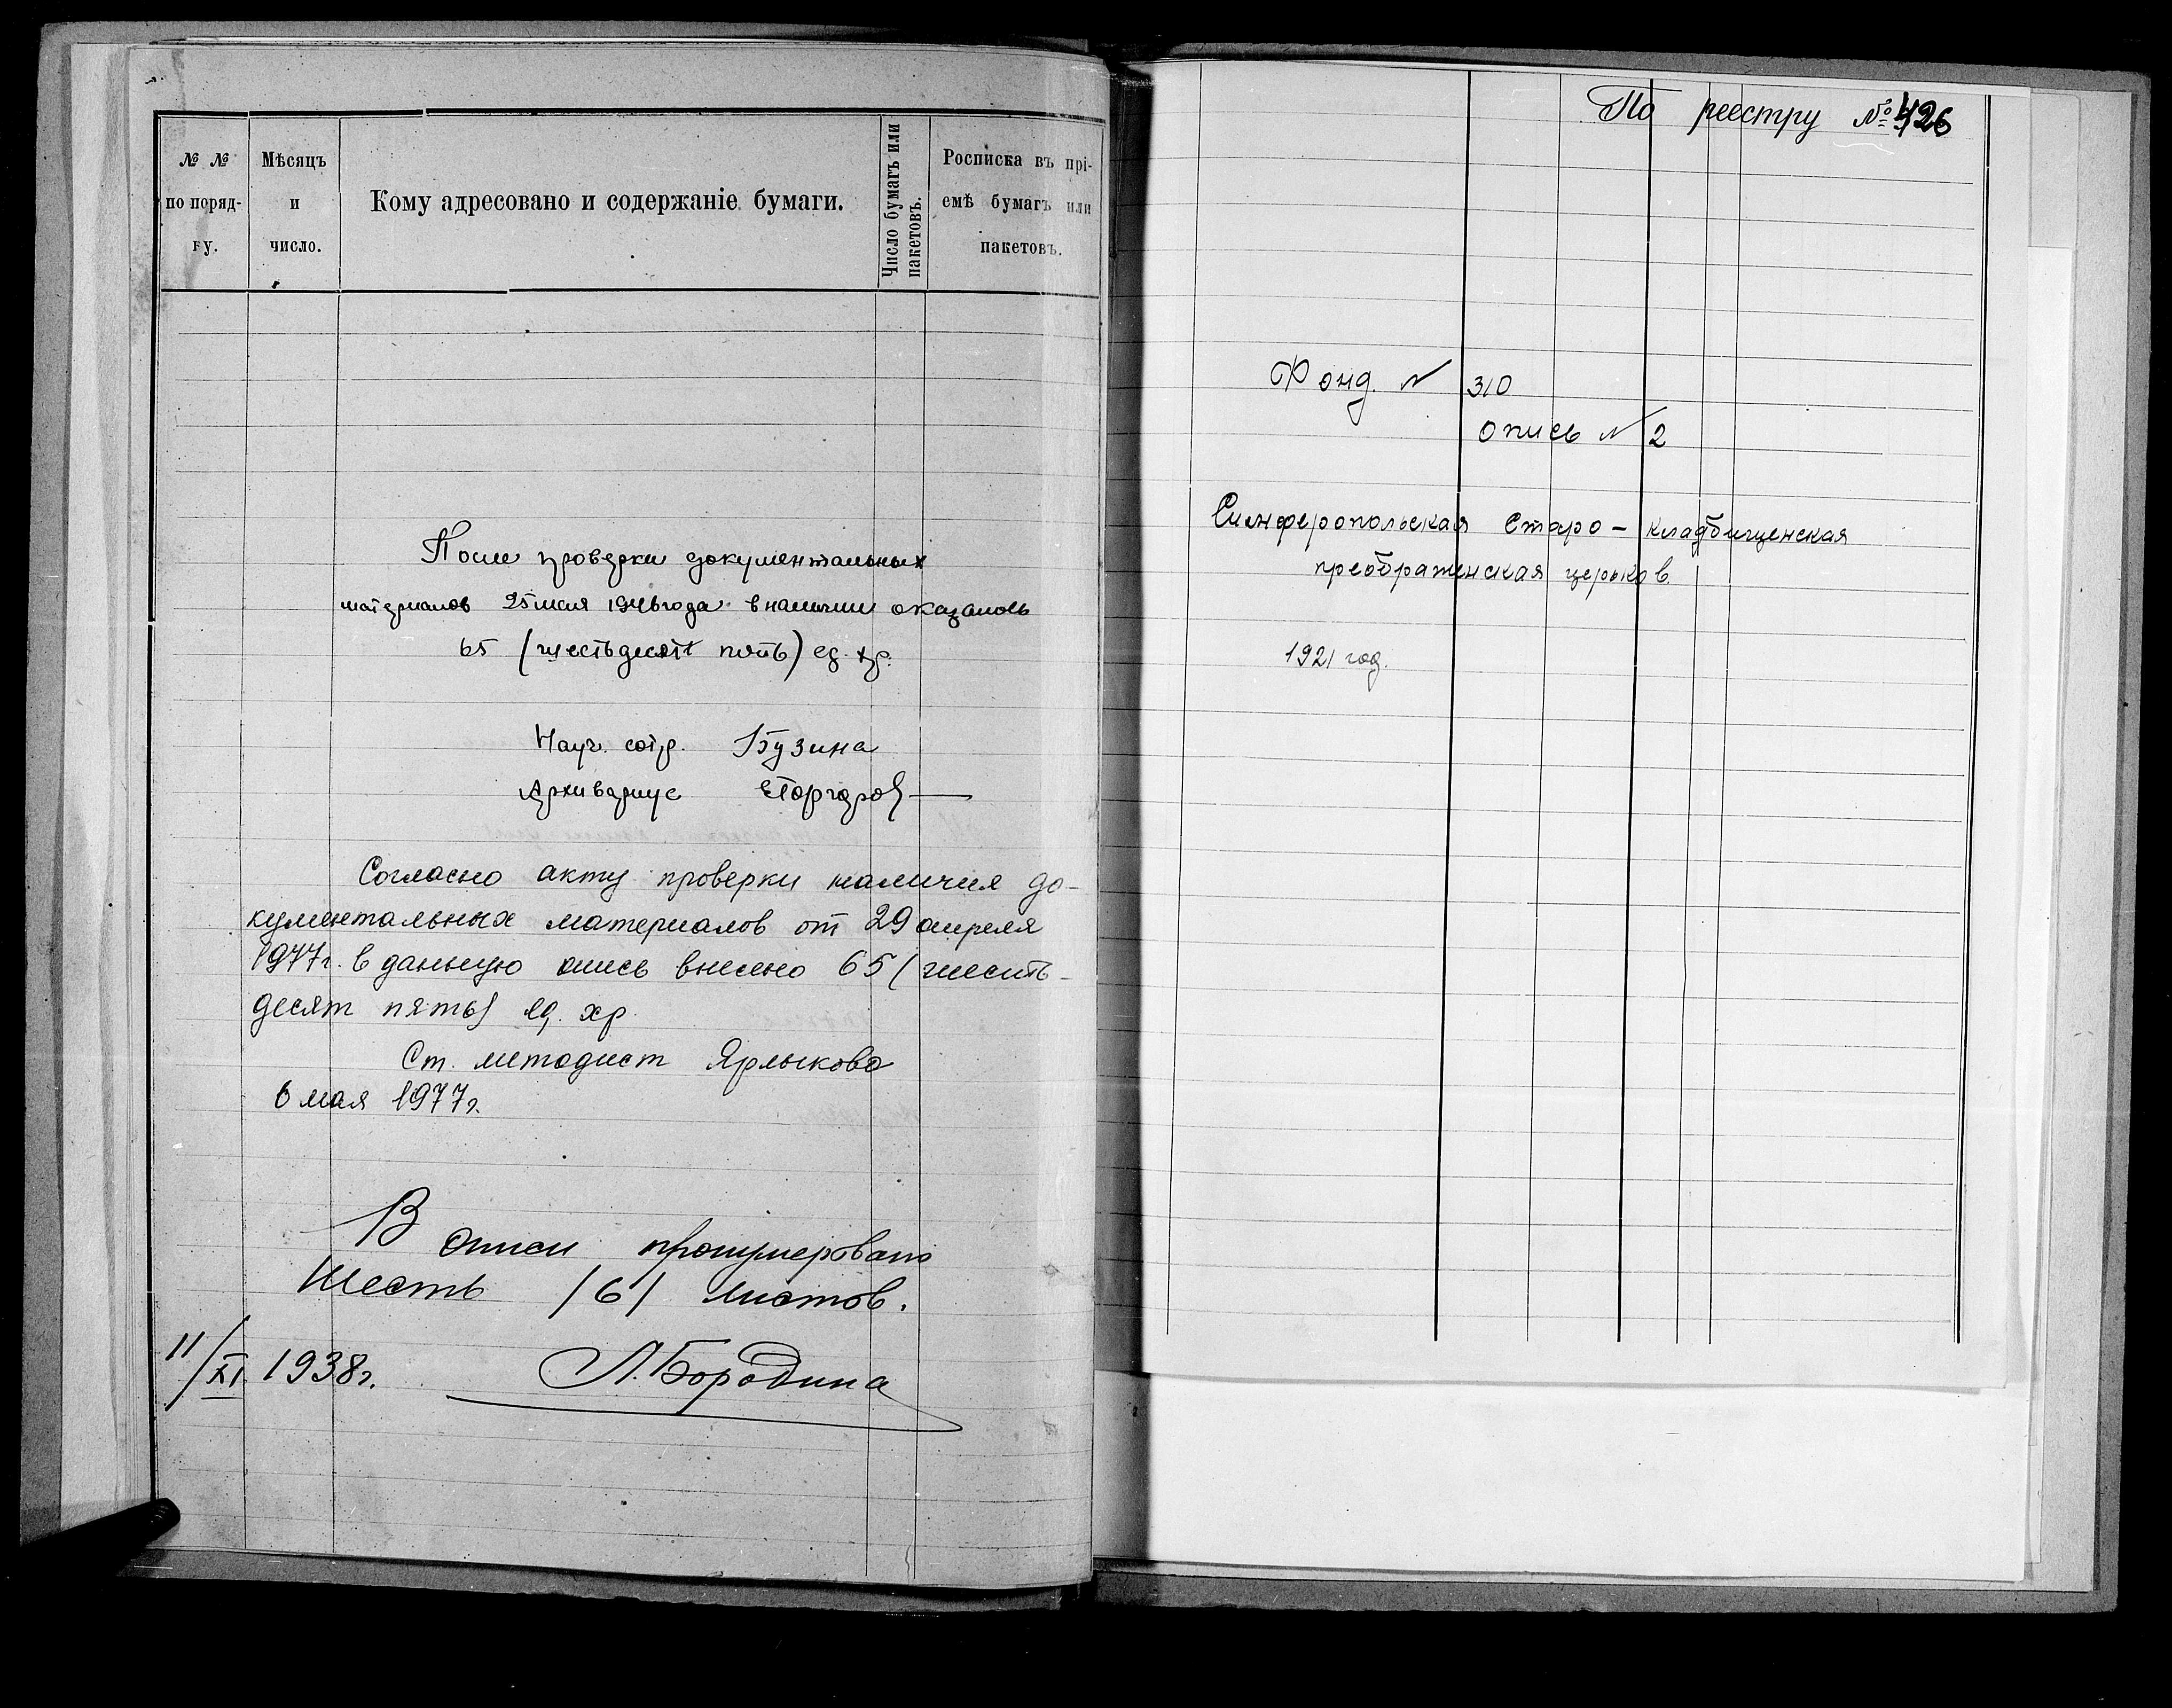 № №
по поряд-
ку.
Мѣсяцъ
и
число.
Кому адресовано и содержаніе бумаги.
Число бумагъ или
пакетовъ.
Росписка въ прі-
емѣ бумагъ или
пакетовъ.
После проверки документальных
материалов 25 1946 года в наличии оказалось
65 (шестьдесят пять) ед. хр.
Науч. сотр. Бузина
Архивариус
Согласно акту проверки наличия до-
кументальных материалов от 29 апреля
1977г. в данную опись внесено 65 (шесть-
десят пять) ед. хр.
Ст. методист Ярлыкова
6 мая 1977г.
В описи пронумеровано
Шесть /6/ листов.
11/XI 1938г. Л. Бородина
По реестру № 426
Фонд. N 310
опись N 2
Симферопольская Старо-кладбищенская
преображенская церков.
1921 год.